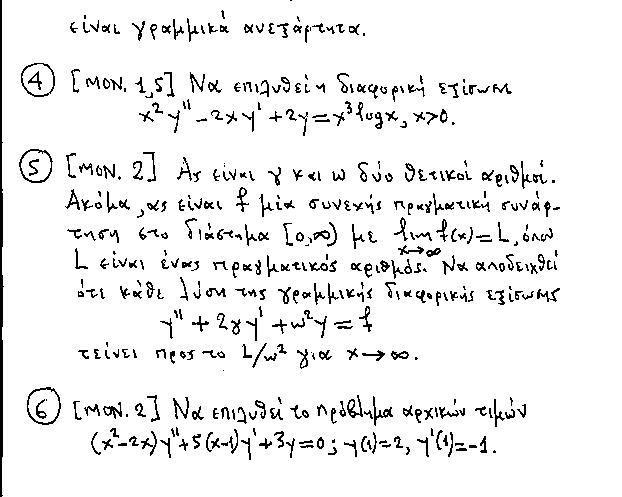 είναι γραμμικά ανεξάρτητα.
④ [ΜΟΝ. 1,5] Να επιλυθεί η διαφορική εξίσωση
x² y'' - 2xy' + 2y = x³ logx, x>0.
⑤ [ΜΟΝ. 2] Ας είναι γ και ω δύο θετικοί αριθμοί.
Ακόμα, ας είναι f μία συνεχής πραγματική συνάρ-
τηση στο διάστημα [0,∞) με lim f(x) = L, όπου
x→∞
L είναι ένας πραγματικός αριθμός. Να αποδειχθεί
ότι κάθε λύση της γραμμικής διαφορικής εξίσωσης
y'' + 2γy' + ω²y = f
τείνει προς το L/ω² για x→∞.
⑥ [ΜΟΝ. 2] Να επιλυθεί το πρόβλημα αρχικών τιμών
(x²-2x)y'' + 5(x-1)y' + 3y = 0; y(1)=2, y'(1)=-1.